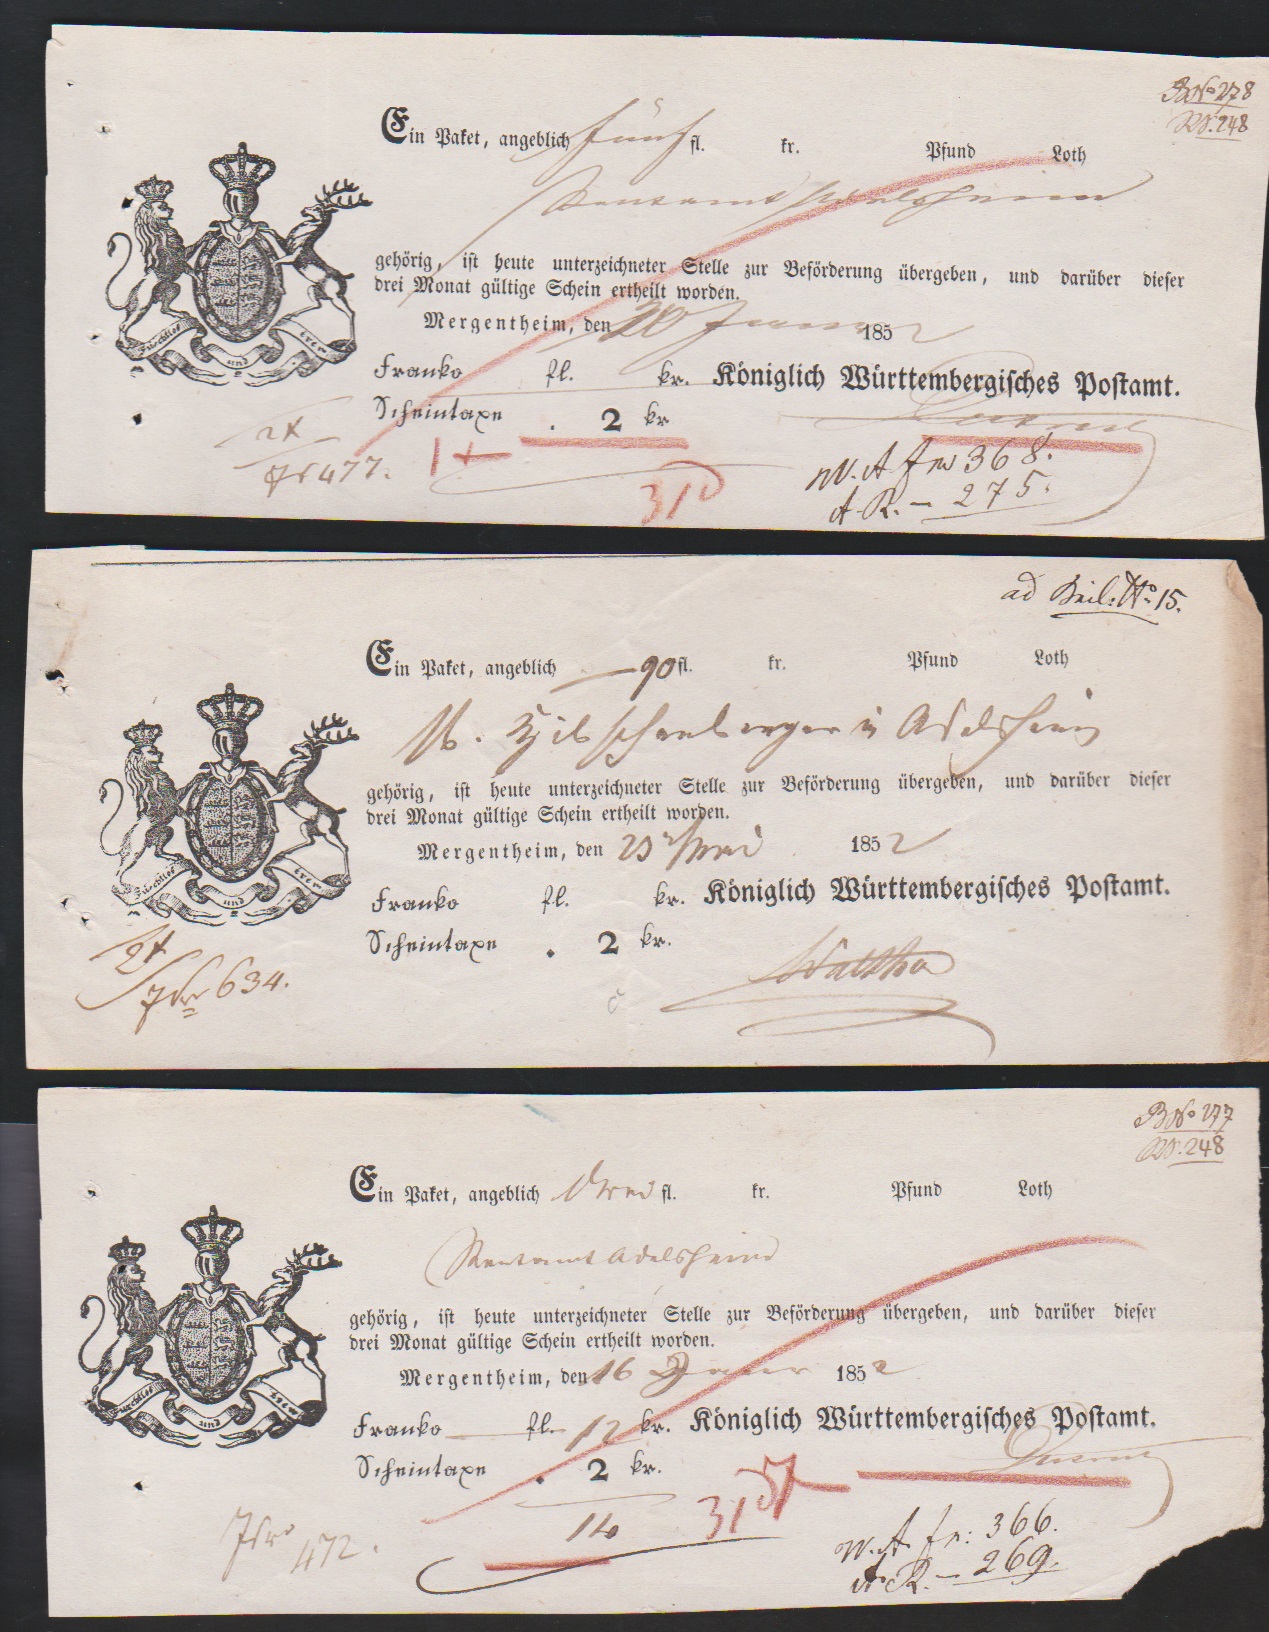 B№ 278
248
Ein Paket, angeblich fünf fl. kr. Pfund Loth
Rentamt Adelsheim
gehörig, ist heute unterzeichneter Stelle zur Beförderung übergeben, und darüber dieser
drei Monat gültige Schein ertheilt worden.
Mergentheim, den 20 Januar 1852
Furchtlos und trew
Franko fl. kr. Königlich Württembergisches Postamt.
Scheintaxe . 2 kr
477.
W. A fr 368.
A. R. — 275.
ad Beil: No 15.
Ein Paket, angeblich — 90 fl. kr. Pfund Loth
in Adelsheim
gehörig, ist heute unterzeichneter Stelle zur Beförderung übergeben, und darüber dieser
drei Monat gültige Schein ertheilt worden.
Mergentheim, den 1852
Furchtlos und trew
Franko fl. kr. Königlich Württembergisches Postamt.
Scheintaxe . 2 kr.
634.
B№ 277
248
Ein Paket, angeblich fl. kr. Pfund Loth
Rentamt Adelsheim
gehörig, ist heute unterzeichneter Stelle zur Beförderung übergeben, und darüber dieser
drei Monat gültige Schein ertheilt worden.
Mergentheim, den 16 Januar 1852
Furchtlos und trew
Franko — fl. 12 kr. Königlich Württembergisches Postamt.
Scheintaxe . 2 kr.
472.
W. A. fr: 366.
A. R. — 269.